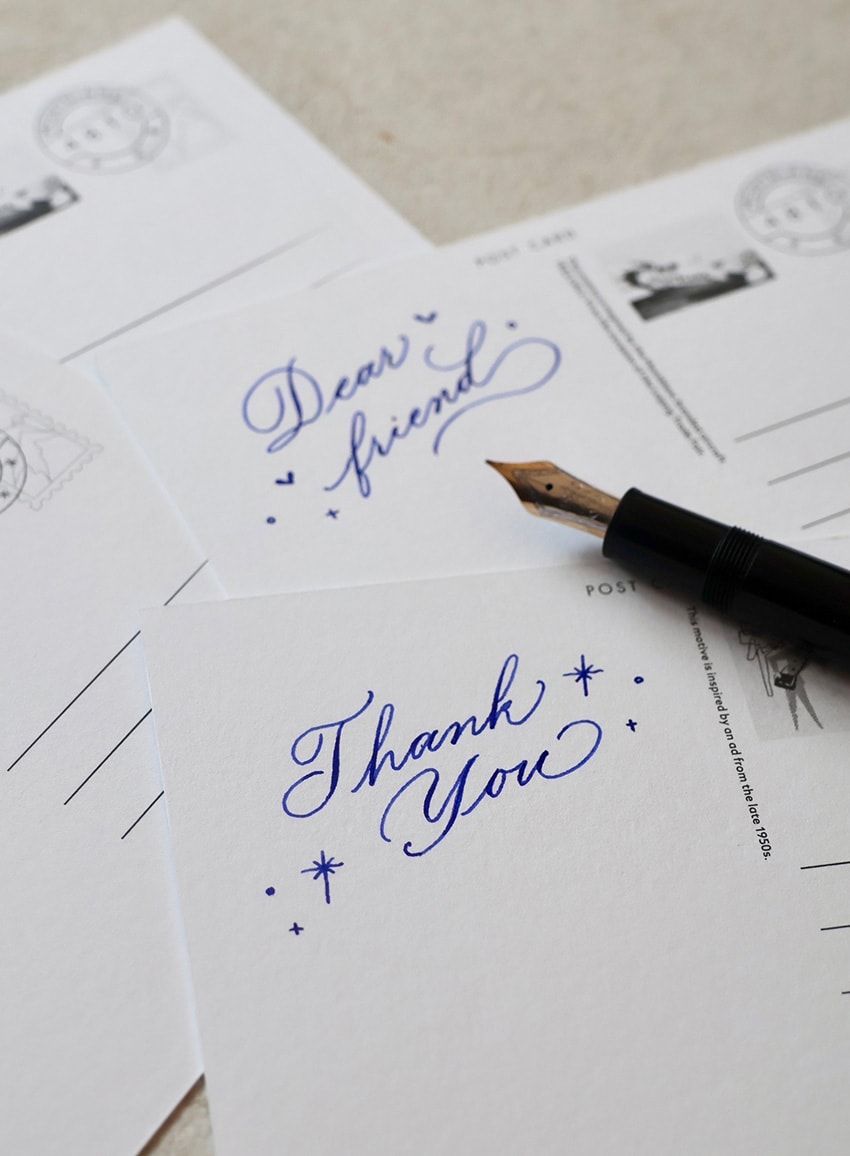 POST CARD
Dear
friend
POST
Thank
You
This motive is inspired by an ad from the late 1950s.